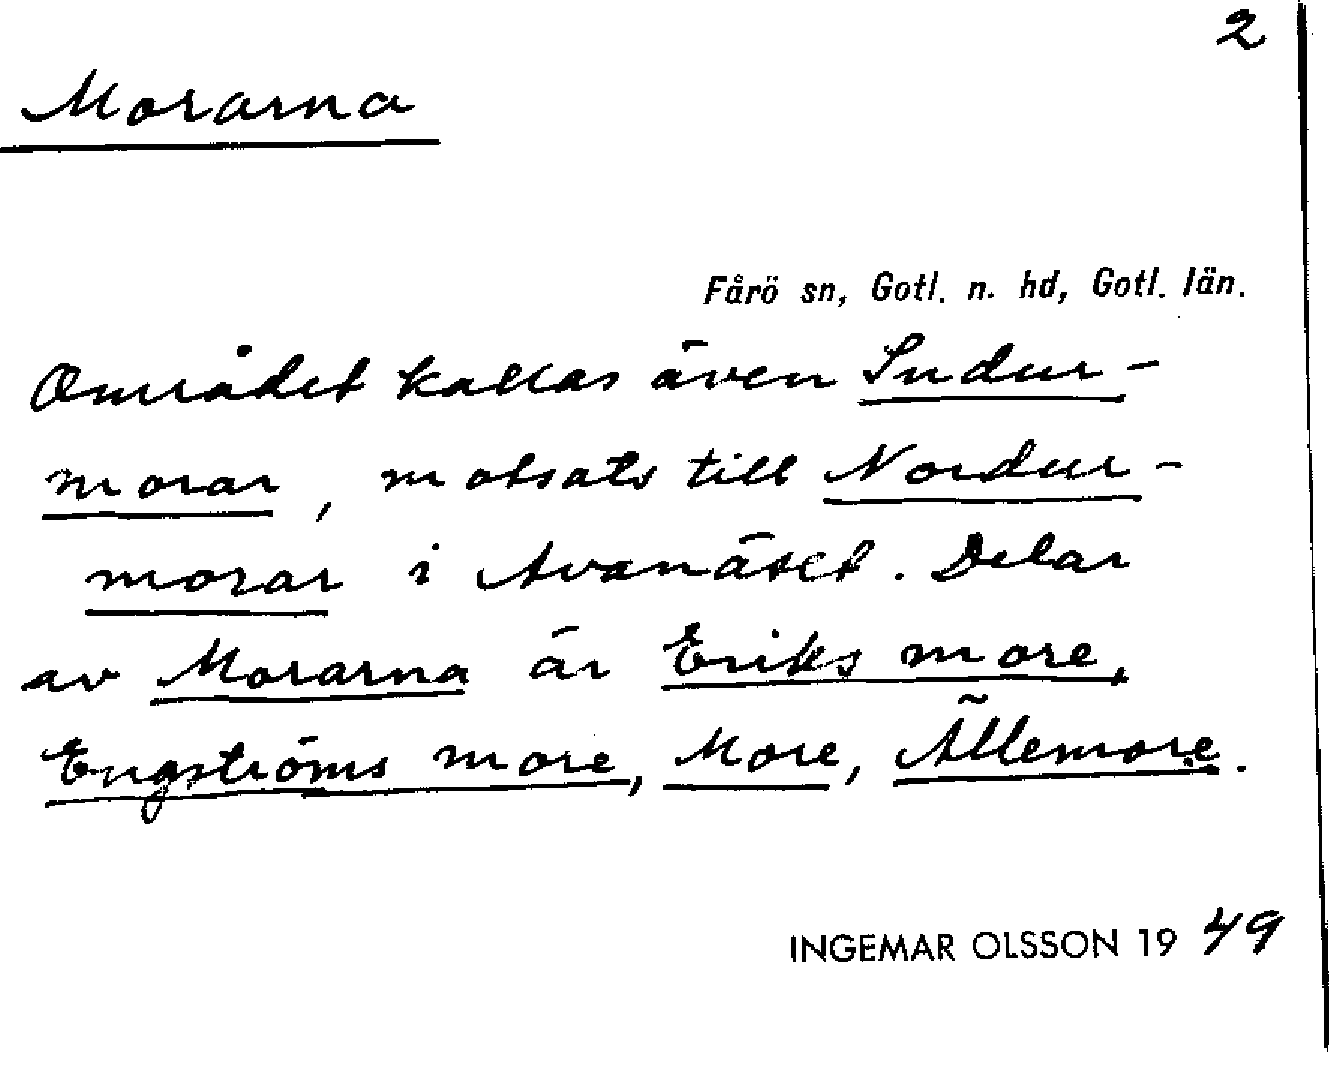 2
Morarna
Fårö sn, Gotl. n. hd, Gotl. län.
Området kallas även Sudur-
morar, motsats till Nordur-
morar i Avanäset. Delar
av Morarna är Eriks more,
Engströms more, More, Ällemore.
INGEMAR OLSSON 1949